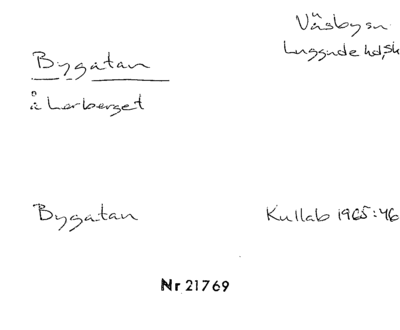 Väsby sn
Luggude hd, Sk
Bygatan
å Lerberget
Bygatan
Kullab 1965:46
Nr 21769